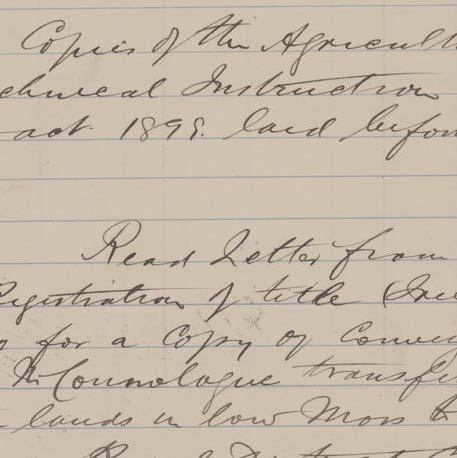 Copies of the Agricult
chnical Instruction
act 1899. laid befor
Read Letter from
Registration of title (Ire
for a Copy of Convey
McConnologue transfer
lands in low Moss
Rural District C